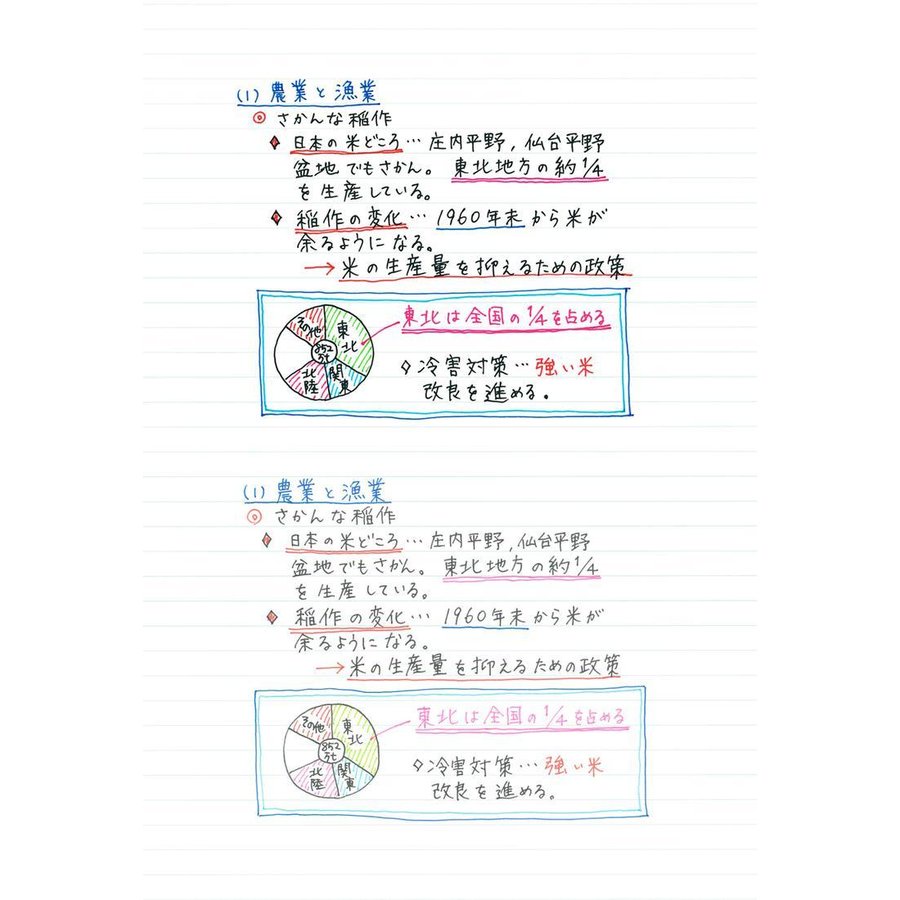 (1) 農業と漁業
◎ さかんな稲作
♦ 日本の米どころ… 庄内平野, 仙台平野
盆地でもさかん。 東北地方の約1/4
を生産している。
♦ 稲作の変化… 1960年末から米が
余るようになる。
→米の生産量を抑えるための政策
その他
東北
852
万t
北陸
関東
東北は全国の1/4を占める
◇冷害対策…強い米
改良を進める。
(1) 農業と漁業
◎ さかんな稲作
♦ 日本の米どころ… 庄内平野, 仙台平野
盆地でもさかん。 東北地方の約1/4
を生産している。
♦ 稲作の変化… 1960年末から米が
余るようになる。
→米の生産量を抑えるための政策
その他
東北
852
万t
北陸
関東
東北は全国の1/4を占める
◇冷害対策…強い米
改良を進める。